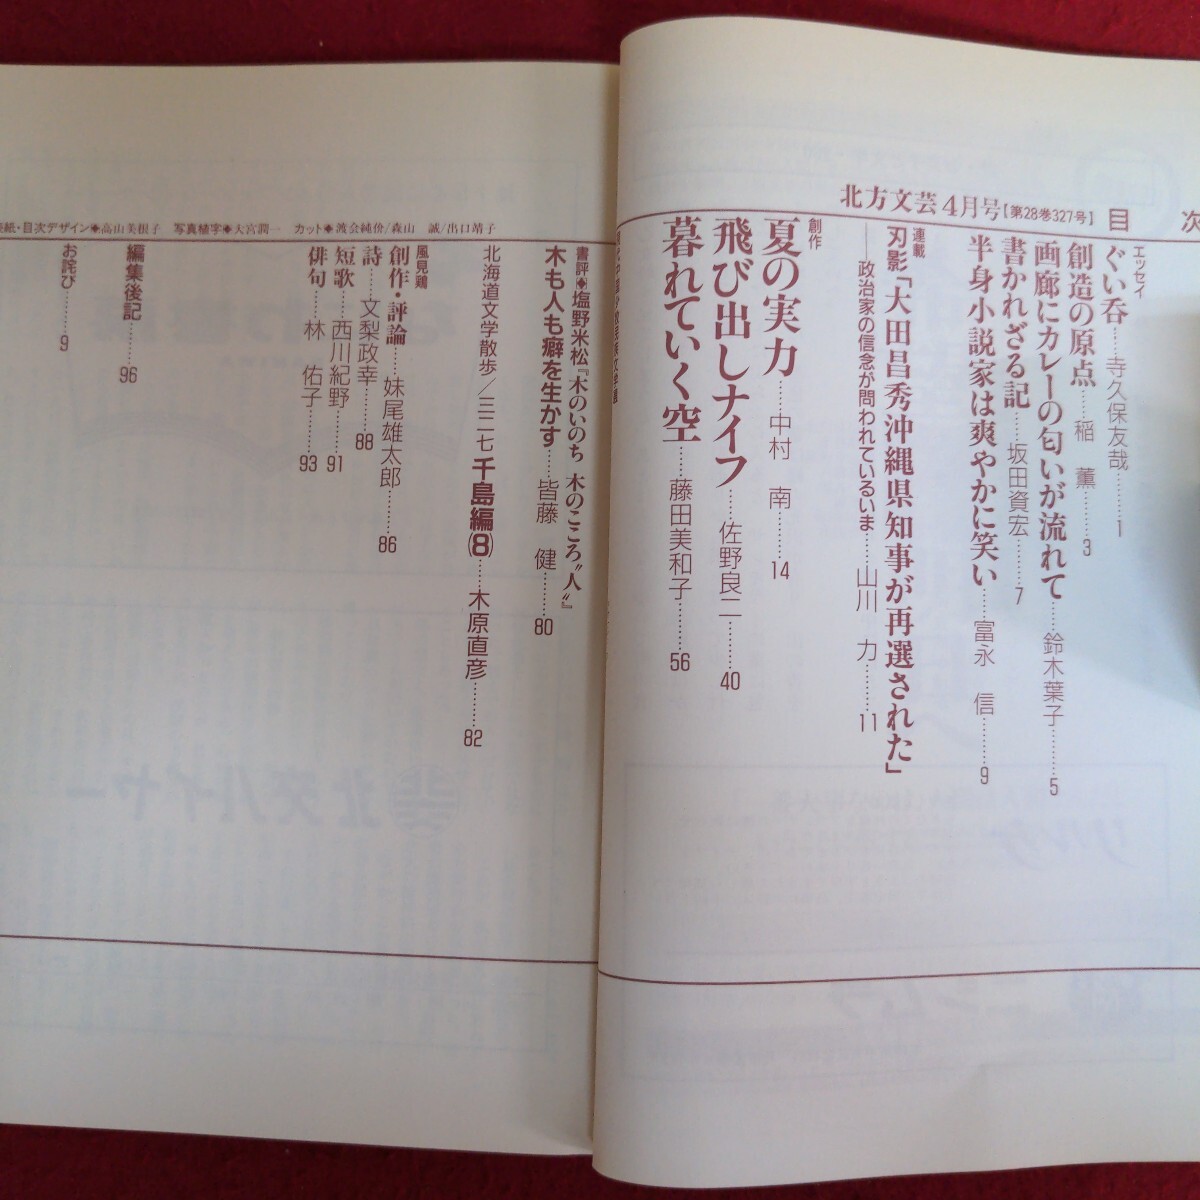 北方文芸4月号【第28巻327号】 目 次
エッセイ
ぐい呑……寺久保友哉………1
創造の原点……稲 薫………3
画廊にカレーの匂いが流れて……鈴木葉子………5
書かれざる記……坂田資宏………7
半身小説家は爽やかに笑い……富永 信………9
連載
刃影「大田昌秀沖縄県知事が再選された」
――政治家の信念が問われているいま……山川 力………11
創作
夏の実力……中村 南………14
飛び出しナイフ……佐野良二………40
暮れていく空……藤田美和子………56
書評◆塩野米松『木のいのち 木のこころ〝人〟』
木も人も癖を生かす……皆藤 健………80
北海道文学散歩/三二七 千島編(8)……木原直彦………82
風見鶏
創作・評論……妹尾雄太郎………86
詩……文梨政幸………88
短歌……西川紀野………91
俳句……林 佑子………93
編集後記………96
お詫び………9
紙・目次デザイン◆高山美根子 写真植字◆大宮潤一 カット◆渡会純价/森山 誠/出口靖子